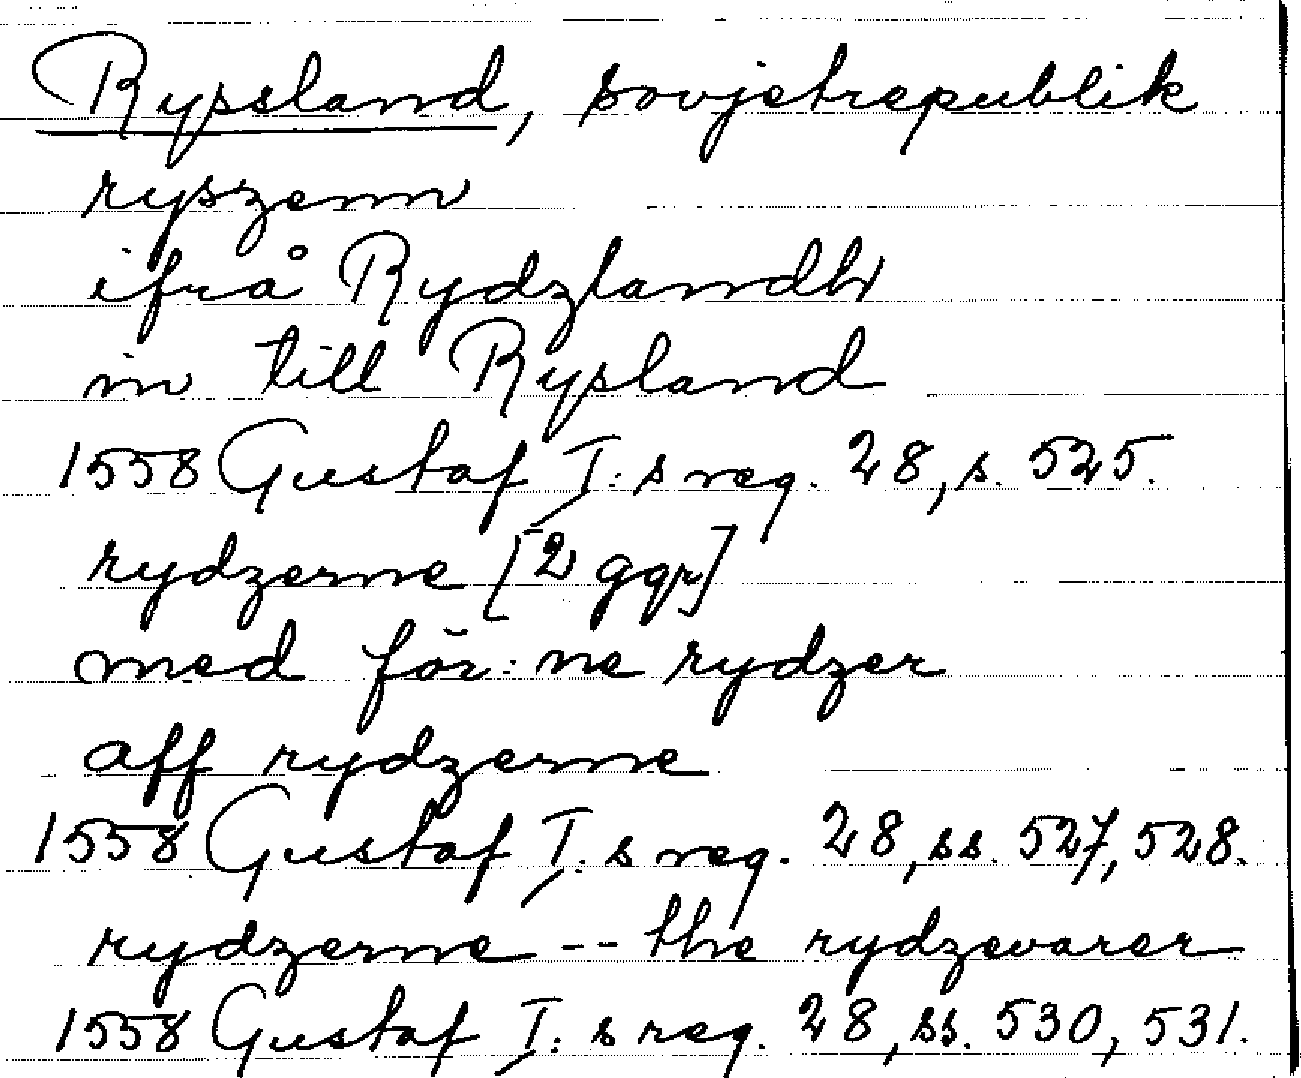 Ryssland, sovjetrepublik
ryszenn
ifrå Rydzlandh
in till Rysland
1558 Gustaf I:s reg. 28, s. 525.
rydzerne [2 ggr]
med för:ne rydzer
aff rydzerne
1558 Gustaf I:s reg. 28, ss. 527, 528.
rydzerne -- the rydzevarer
1558 Gustaf I:s reg. 28, ss. 530, 531.